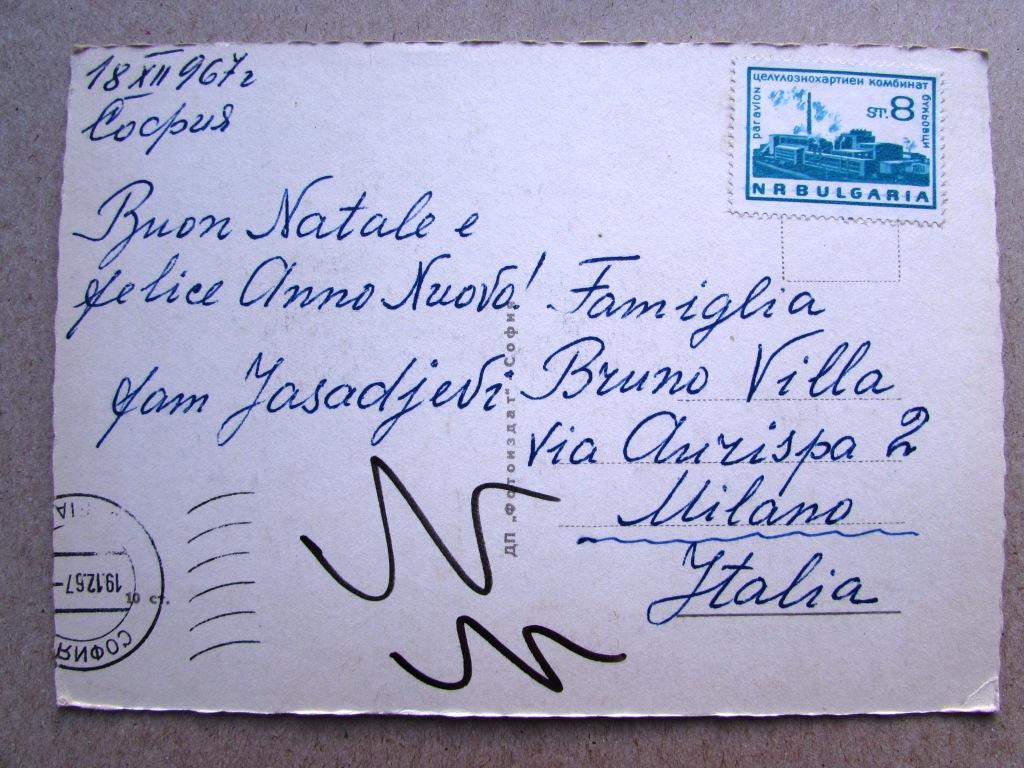 18 XII 967 г
София
Buon Natale e
felice Anno Nuovo!
fam Jasadjevi
par avion
целулознохартиен комбинат
букьовци
ST. 8
NR BULGARIA
Famiglia
Bruno Villa
via Aurispa 2
Milano
Italia
ДП „Фотоиздат“ - София
19.12.67
СОФИЯ
10 ст.